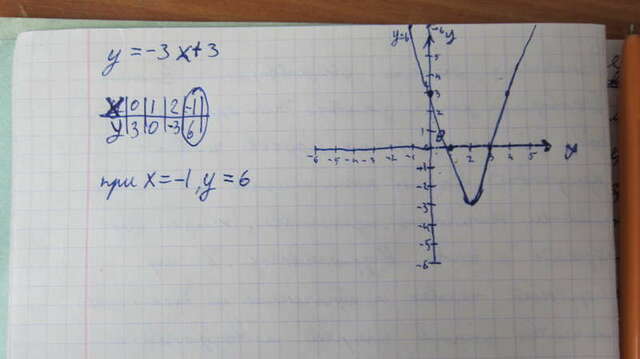 y = -3x+3
x 0 1 2 -1
y 3 0 -3 6
при x = -1, y = 6
y=6
6 y
5
4
3
2
1
-6 -5 -4 -3 -2 -1 1 2 3 4 5 x
-1
-2
-3
-4
-5
-6